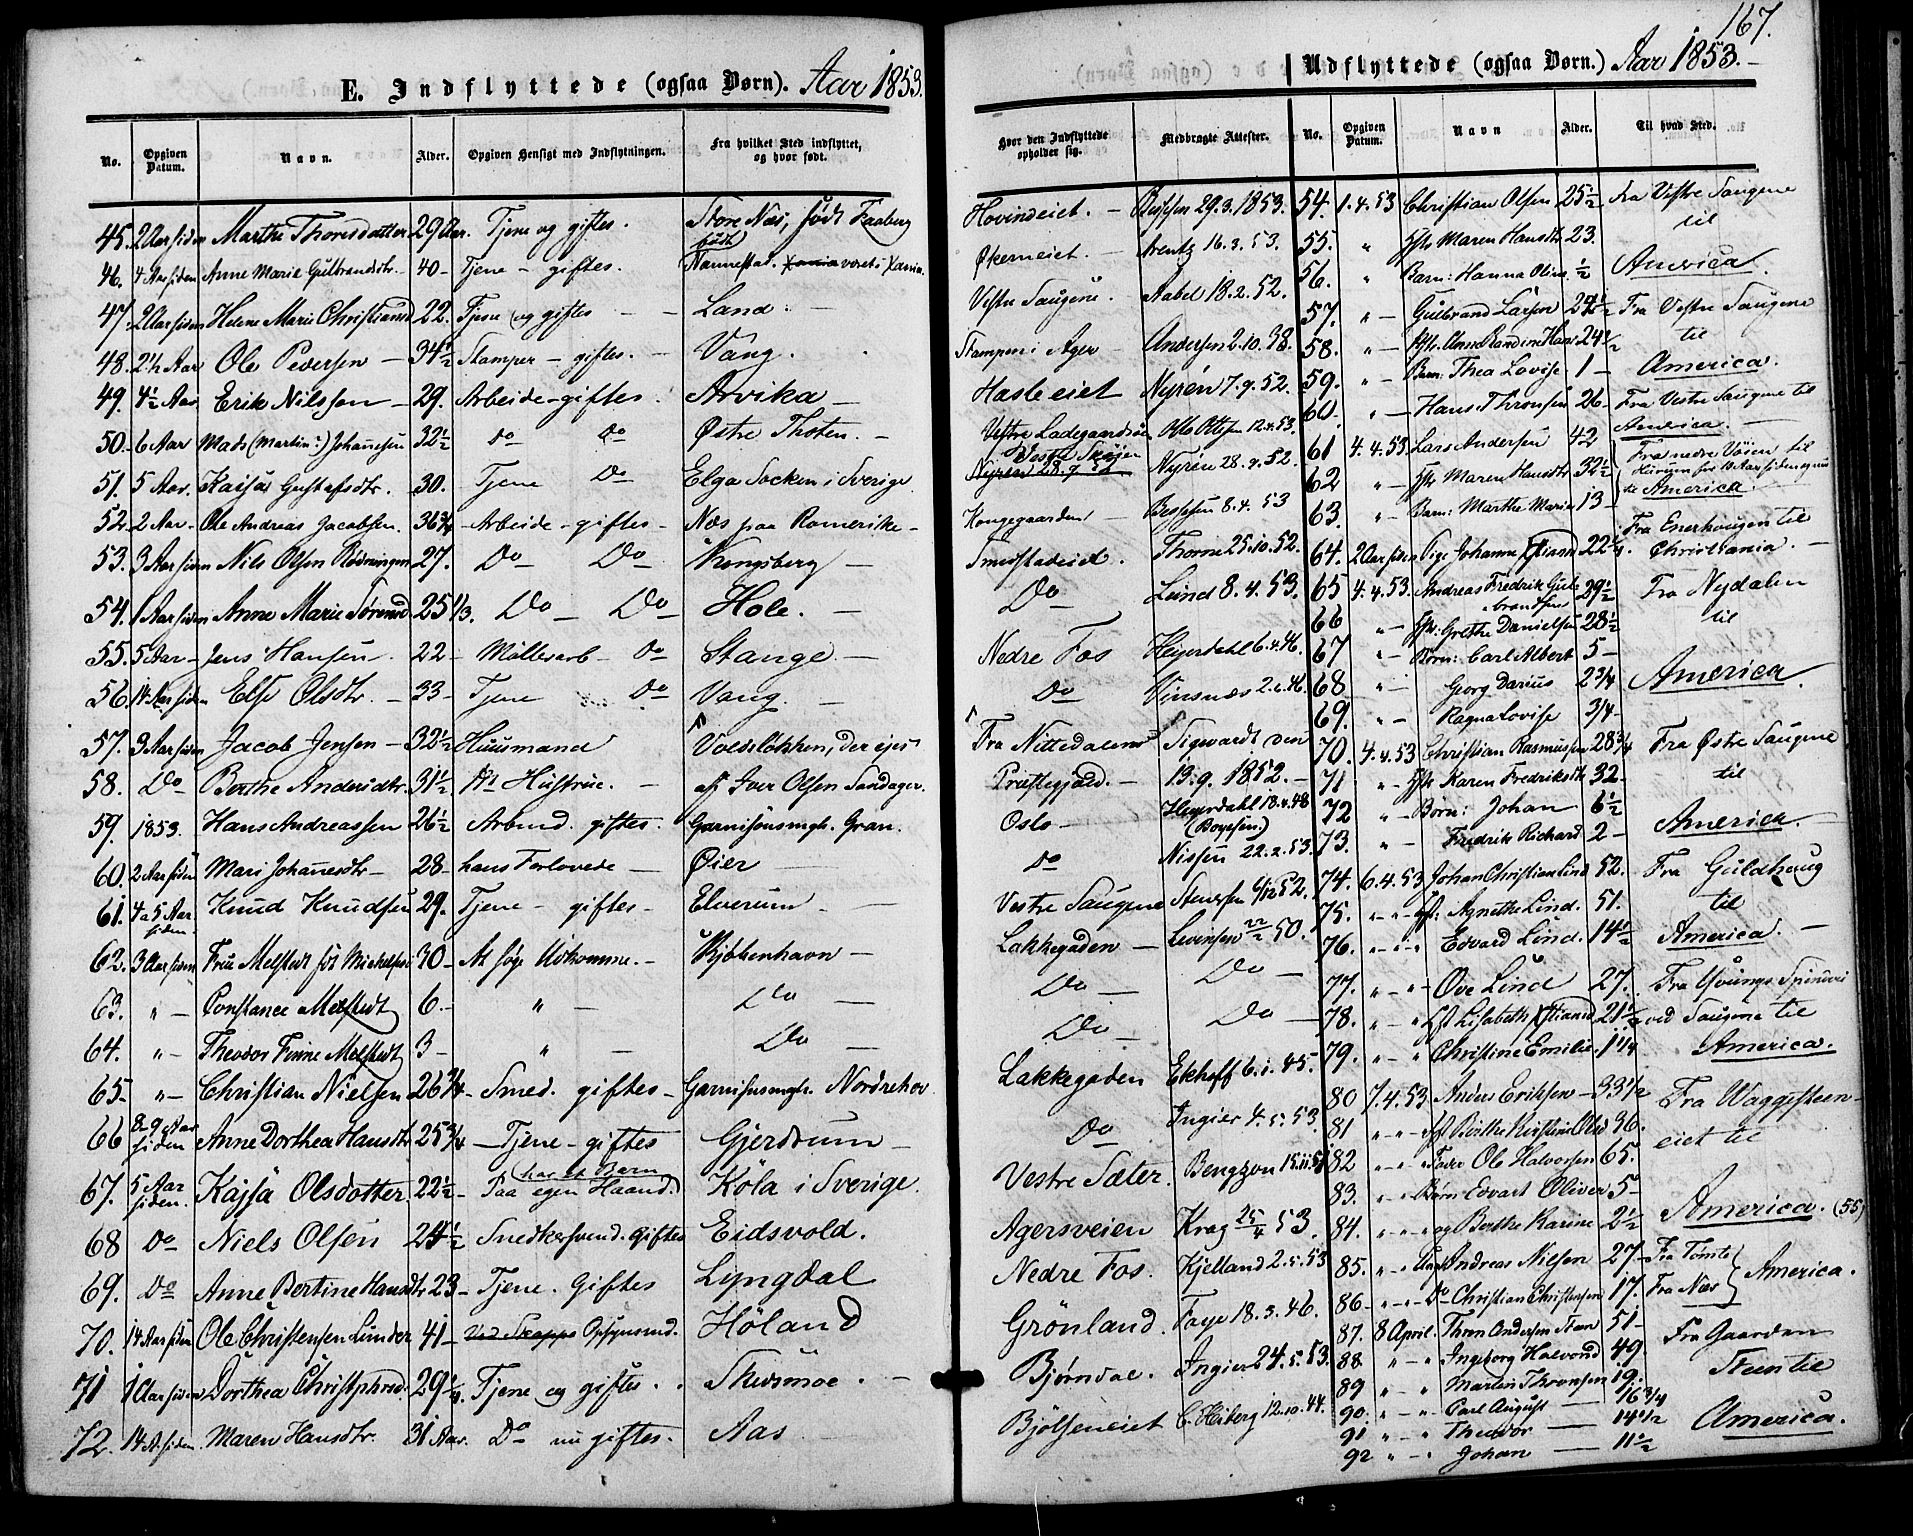 167.
E. Indflyttede (ogsaa Børn). Aar 1853.
No. Opgiven Datum. Navn. Alder. Opgiven Hensigt med Indflytningen. Fra hvilket Sted indflyttet, og hvor født.
45. 2 Aar siden Marthe Thoresdatter 29 Aar. Tjene og giftes. Store Næs, født Faaberg
46. 4 Aar siden Anne Marie Gulbrandsdtr. 40 - Tjene - giftes. født Nannestad. været i Xania.
47. 2 Aar siden Helene Marie Christiansd 22. Tjene og giftes - Land. -
48. 2½ Aar Ole Pedersen - 34½ Stamper - giftes. - Vang.
49. 4½ Aar Erik Nilsson - 29. Arbeide - giftes. Arvika -
50. 6 Aar Mads (Martin:) Johannesen 32½ do Do Østre Thoten. -
51. 5 Aar. Kaisa Gustafsdtr. 30. Tjene Do Elga Socken i Sverige
52. 2 Aar - Ole Andreas Jacobsen. 36¾ - Arbeide - giftes - Næs paa Romerike -
53. 3 Aar siden Nils Olsen Rødningen 27. Do Do Kongsberg -
54. 1 Aar siden Anne Marie Sørensd 25⅓. Do - Do - Hole. -
55. 5 Aar - Jens Hansen. 22 - Møllerarb - Do Stange. -
56. 14 Aar siden Else Olsdtr. - 33 - Tjene Do Vang. -
57. 3 Aar siden Jacob Jensen - 32½ Huusmand Voldsløkken, der ejes
58. Do Berthe Andersdtr. 31½ Hs Hustrue. - af Iver Olsen Sandager.
59. 1853. Hans Andreassen 26½ Arbmd. giftes. Garnisonsmgh. Gran.
60. 2 Aar siden Mari Johannesdtr - 28 - hans Forlovede - Øier -
61. 4 a 5 Aar siden Knud Knudsen 29. Tjene - giftes - Elverum -
62. 3 Aar siden Frue Melstedt født Michelsen 30 - At søge Udkomme. - Kjøbenhavn -
63. " - Constance Melstedt 6. - " - Do -
64. " - Theodor Finne Melstedt 3 - " - Do -
65 - " - Christian Nielsen 26¾ - Smed. giftes - Garnisonsmgh. Nordrehov
66 8-9 Aar siden Anne Dorthea Hansdtr 25¾ - Tjene - giftes Gjerdrum -
67. 5 Aar siden. Kajsa Olsdotter 22½ - har et Barn Paa egen Haand. Köla i Sverige.
68 Do Niels Olsen 24½ Snedkersvend. giftes Eidsvold.
69. Do Anne Bertine Hansdtr 23 - Tjene. Giftes Lyngdal
70. 14 Aar siden Ole Christensen Linder 41 - Opsynsmd. Höland
71 1 Aar siden Dorthea Christophersd. 29¼. Tjene og giftes. . Skedsmoe. -
72. 14 A. siden. Maren Hansdtr. 31 Aar. Do nu giftes. Aas
Udflyttede (ogsaa Børn.) Aar 1853.
Hvor den Indflyttede opholder sig. Medbragte Attester. No. Opgiven Datum. Navn Alder. Til hvad Sted.
Hovindeiet. - Bessesen 29.3.1853. 54. 1.4.53 Christian Olsen 25½ Fra Vestre Saugene
Økerneiet. - Arentz 16.3.53. 55. " Hst Maren Hansdtr 23. til
Vestre Saugene. Aabel 18.2.52. 56. " Barn: Hanna Oline ½ America.
Stampen i Ager Andersen 2.10.38. 57. " - Gulbrand Larsen 24½ Fra Vestre Saugene
58. " - Hst. Anne Randine Hans 24½ til
Hasleeiet Nyrén 7.9.52. 59. " - Barn: Thea Lovise 1 - America.
Vestre Ladegaardsøen Otto Ottesen 12.4.53. 60. " - Hans Thronsen 26 - Fra Vestre Saugene til America. -
Vestre Skøjen Nyrén 28.9.52. 61 4.4.53 Lars Andersen 42 Fra nedre Vøien til
62 " - Hst Maren Hansdtr 32½ Hurum for 10 Aar siden og nu
Kongegaarden Bessesen 8.4.53 63. " - Barn: Marthe Marie 13 - til America. -
Smedstadeiet. Thorne 25.10.52. 64. 2 Aar siden Pige Johanne Xtiansd 22¼. Fra Enerhougen til Christiania. -
Do Lund 8.4.53. 65 4.4.53. Andreas Fredrik Gulbrandsen 29½ Fra Nydalen
66 " - Hst: Grethe Danielsen 28½ til
Nedre Fos Heyerdahl 6.4.46. 67 " - Børn: Carl Albert 5 -
Do Vinsnæs 2.6.46. 68 " - Georg Darius 2¾ America.
69. " - Ragna Lovise ¾ -
Fra Nittedalens Sigwardt den 70. 4.4.53 Christian Rasmussen 28¾ Fra Østre Saugene
Præstegjæld. - 13.9.1852. - 71 " - Hst Karen Fredriksdtr 32 - til
Oslo - Heyerdahl 18.4.48 (Boyesen.) 72 " - Børn: Johan 6½
Do Nissen 22.2.53. 73. " - Fredrik Richard 2 - America. -
Vestre Saugene Stenersen 6/12 52. 74. 6.4.53 Johan Christian Lind 52. Fra Guldhaug
75. " - " - Hst: Agnethe Lind. 51. til
Lakkegaden - Levinsen 22/2 50. 76. " - " - Edvard Lind. 14½ America. -
Do - Do - 77. " - " - Ove Lind 27. Fra Youngs Spinderi
Do - Do - 78. " - " Hst Lisabeth Xtiansd 21½ ved Saugene til
Lakkegaden Ekhoff 6.1.45. 79. " - " Christine Emilie 1¼ America.
Do Ingier 4.5.53. 80 7.4.53 Anders Eriksen - 33½ Fra Waggesteen-
81 " - " - Hst Berthe Kirstine Olsd 36. eiet til
Vestre Sæter. Bengzon 15.11.51 82 " - " Fader Ole Halvorsen 65.
83. " - " Børn Edvart Oliver 5 -
Agersveien Krag 25/4 53. 84. " - " og Berthe Karine 2½ America. (55)
Nedre Fos. Kjelland 2.5.53 85. " - " Ung. Andreas Nilsen 27 - Fra Tømte
Grönland. Faye 18.3.46. 86 - " - " - Do - Christian Christensen 17. Fra Næs America.
87. 8 April. Thron Andersen Steen 51 - Fra Gaarden
Bjørndal. Ingier 24.5.53. 88 " - " Ingeborg Halvorsd 49 Steen til
89 " - " Martin Thronsen 19.
Bjölseneiet C. Heiberg 12.10.44. 90. " - " Carl August - 16¾
91 " - " Theodor - 14½ America.
92 " - " Johan - 11½